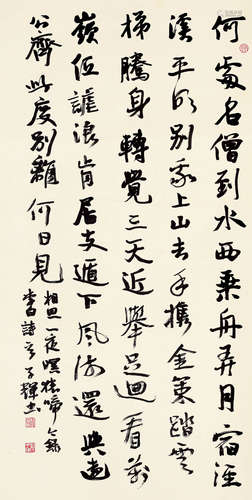 何處名僧到水西乘舟弄月宿涇
溪平明別我上山去手攜金策踏雲
梯騰身轉覺三天近舉足迴看萬
嶺低謔浪肯居支遁下風流還與遠
公齊此度別離何日見
相思一夜暝猿啼 錄
李白詩